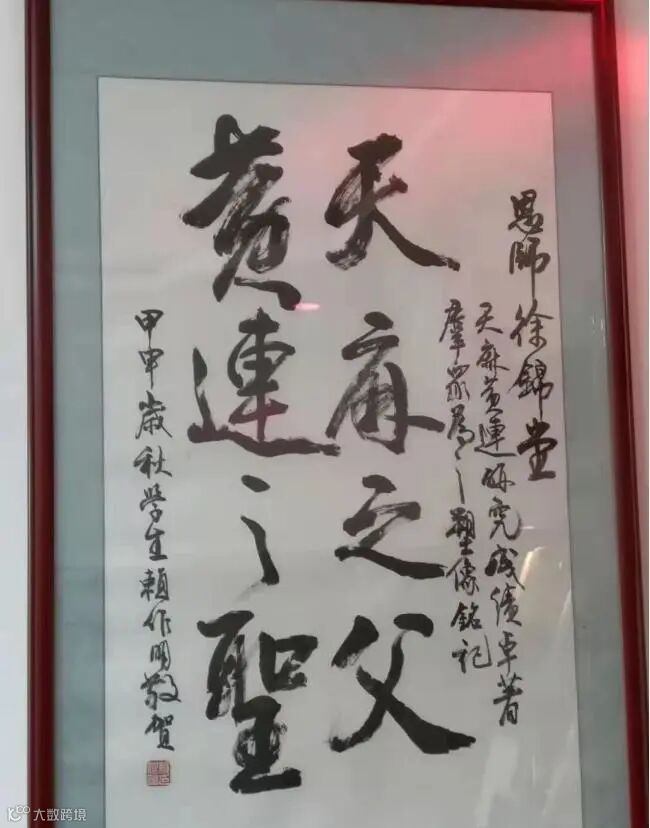 恩師徐錦堂
天麻黃連研究成绩卓著
羣眾為之塑像銘記
天麻之父
黃連之聖
甲申歲秋學生賴作明敬賀
大数跨境